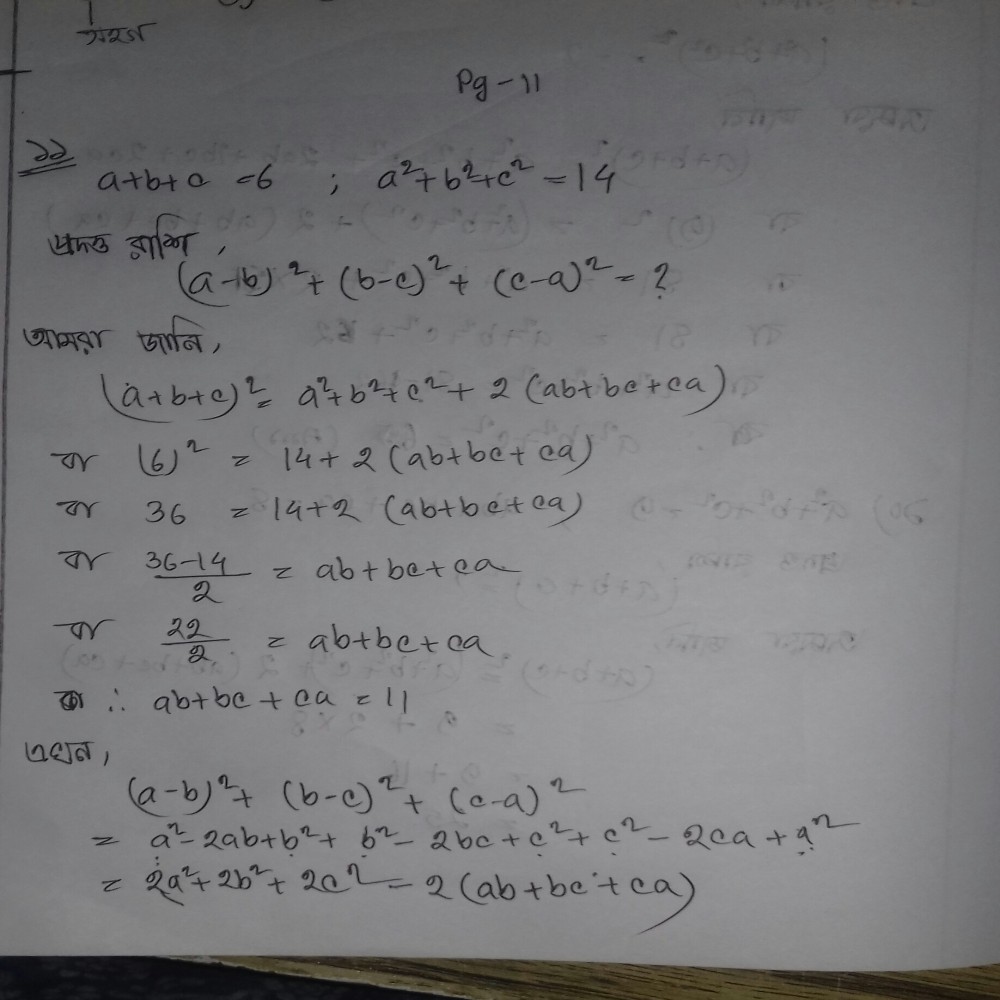 Pg-11
১১
a+b+c =6 ; a²+b²+c² =14
প্রদত্ত রাশি,
(a-b)²+ (b-c)²+ (c-a)² = ?
আমরা জানি,
(a+b+c)² = a²+b²+c²+ 2 (ab+bc+ca)
বা (6)² = 14+ 2 (ab+bc+ca)
বা 36 = 14+2 (ab+bc+ca)
বা 36-14/2 = ab+bc+ca
বা 22/2 = ab+bc+ca
∴ ab+bc+ca = 11
এখন,
(a-b)²+ (b-c)²+ (c-a)²
= a²-2ab+b²+ b²-2bc+c²+c²-2ca+a²
= 2a²+2b²+2c²-2(ab+bc+ca)